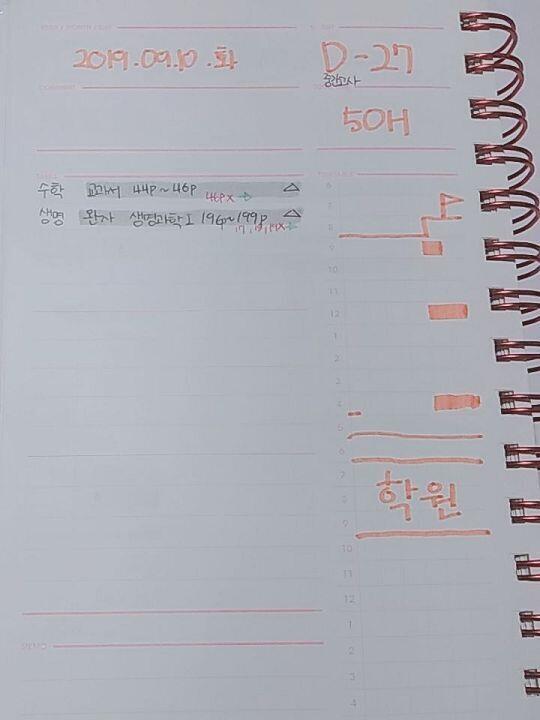 2019.09.10.화
D-27
중간고사
COMMENT
50H
TASKS
TIMETABLE
수학 교과서 44p~46p △
46p X →
생명 완자 생명과학 I 196p~199p △
6
7
8
9
10
11
12
1
2
3
4
5
6
7
8
학원
9
10
11
12
1
MEMO
2
3
4